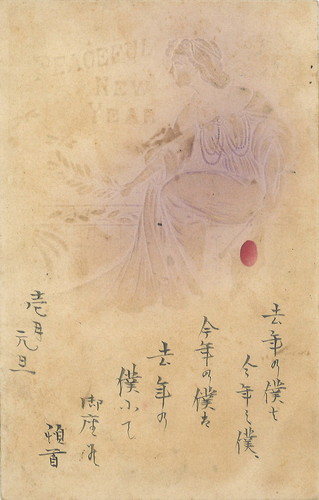 PEACEFUL
NEW
YEAR
去年の僕も
今年の僕、
今年の僕は
去年の
僕にて
御座候
頓首
壱月
元旦